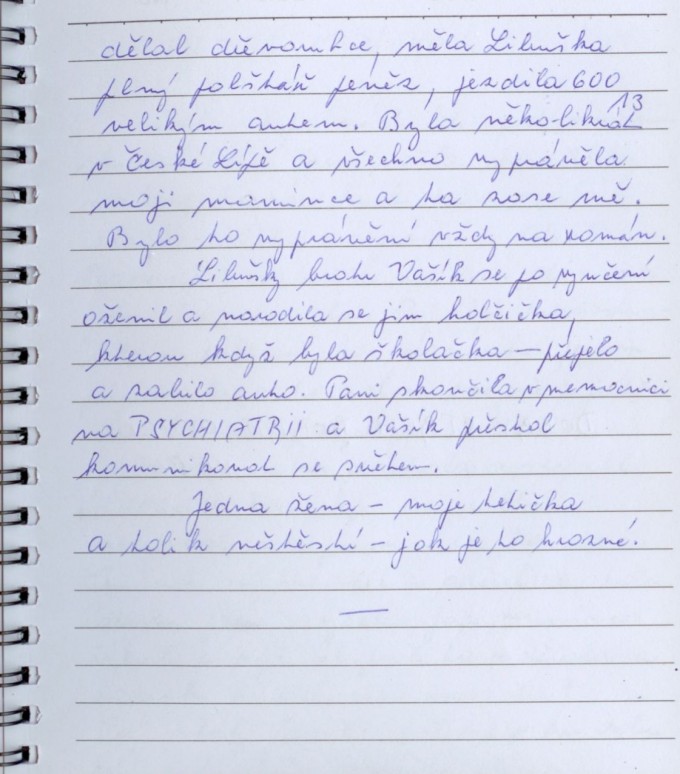 dělal děvomkce, měla Libuška
plný polštář peněz, jezdila 600
13
velikým autem. Byla několikrát
v České Lípě a všechno vyprávěla
moji mamince a ta zase mě.
Bylo to vyprávění vždy na román.
Libušky bratr Vašík se po vyučení
oženil a narodila se jim holčička,
kterou když byla školačka – přejelo
a zabilo auto. Paní skončila v nemocnici
na PSYCHIATRII a Vašík přestal
komunikovat se světem.
Jedna žena – moje tetička
a tolik neštěstí – jak je to hrozné.